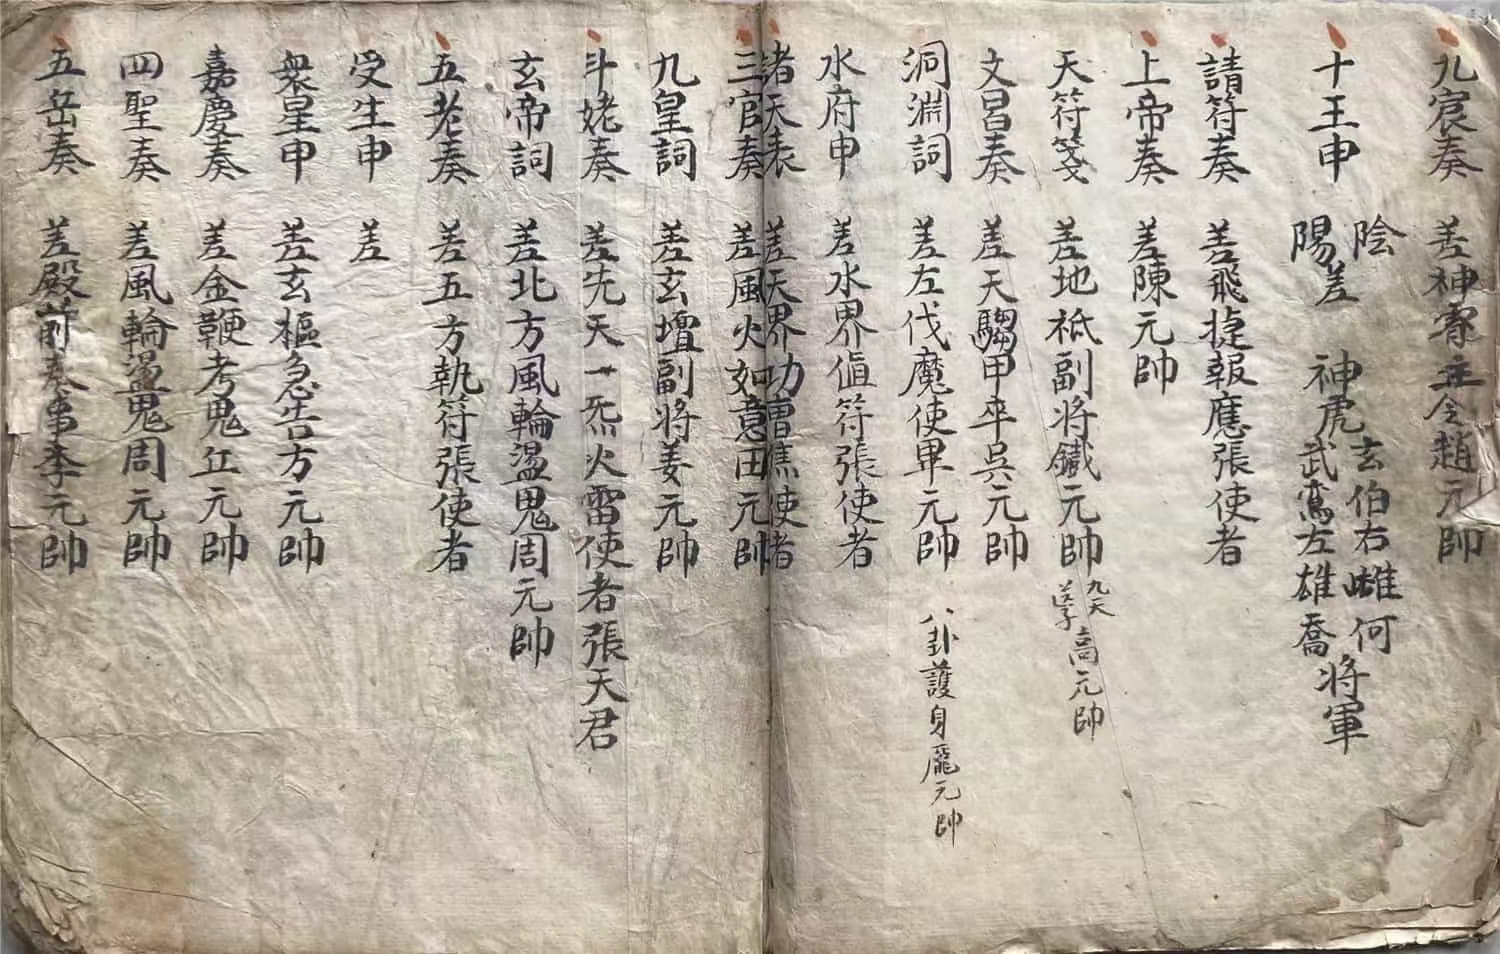 九宸奏 差神霄主令趙元帥
十王申 陰陽差 神虎 玄伯右雌何 武鸞左雄喬 將軍
請符奏 差飛捷報應張使者
上帝奏 差陳元帥
天符箋 差地祇副將鐵元帥 九天 孚 高元帥
文昌奏 差天騶甲卒吳元帥
洞淵詞 差左伐魔使畢元帥 八卦護身龐元帥
水府申 差水界值符張使者
諸天表 差天界功曹焦使者
三官奏 差風火如意田元帥
九皇詞 差玄壇副將姜元帥
斗姥奏 差先天一炁火雷使者張天君
玄帝詞 差北方風輪盪鬼周元帥
五老奏 差五方執符張使者
受生申 差
衆星申 差玄樞急告方元帥
嘉慶奏 差金鞭考鬼丘元帥
四聖奏 差風輪盪鬼周元帥
五岳奏 差殿前奏事李元帥